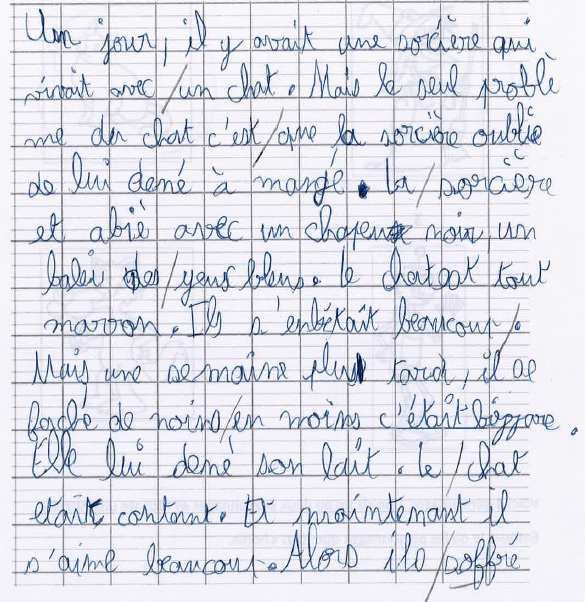 Un jour, il y avait une sorcière qui
vivait avec un chat. Mais le seul problè
me du chat c'est que la sorcière oublie
de lui dené à mangé. la sorcière
et abié avec un chapeau noir, un
balei des yeux bleus. le chat est tout
marron. Ils s'enbétait beaucoup.
Mais une semaine plus tard, il se
faché de moins en moins c'était bizzare.
Elle lui dené son lait. le chat
etait contant. Et maintenant il
s'aime beaucoup. Alors ils soffré